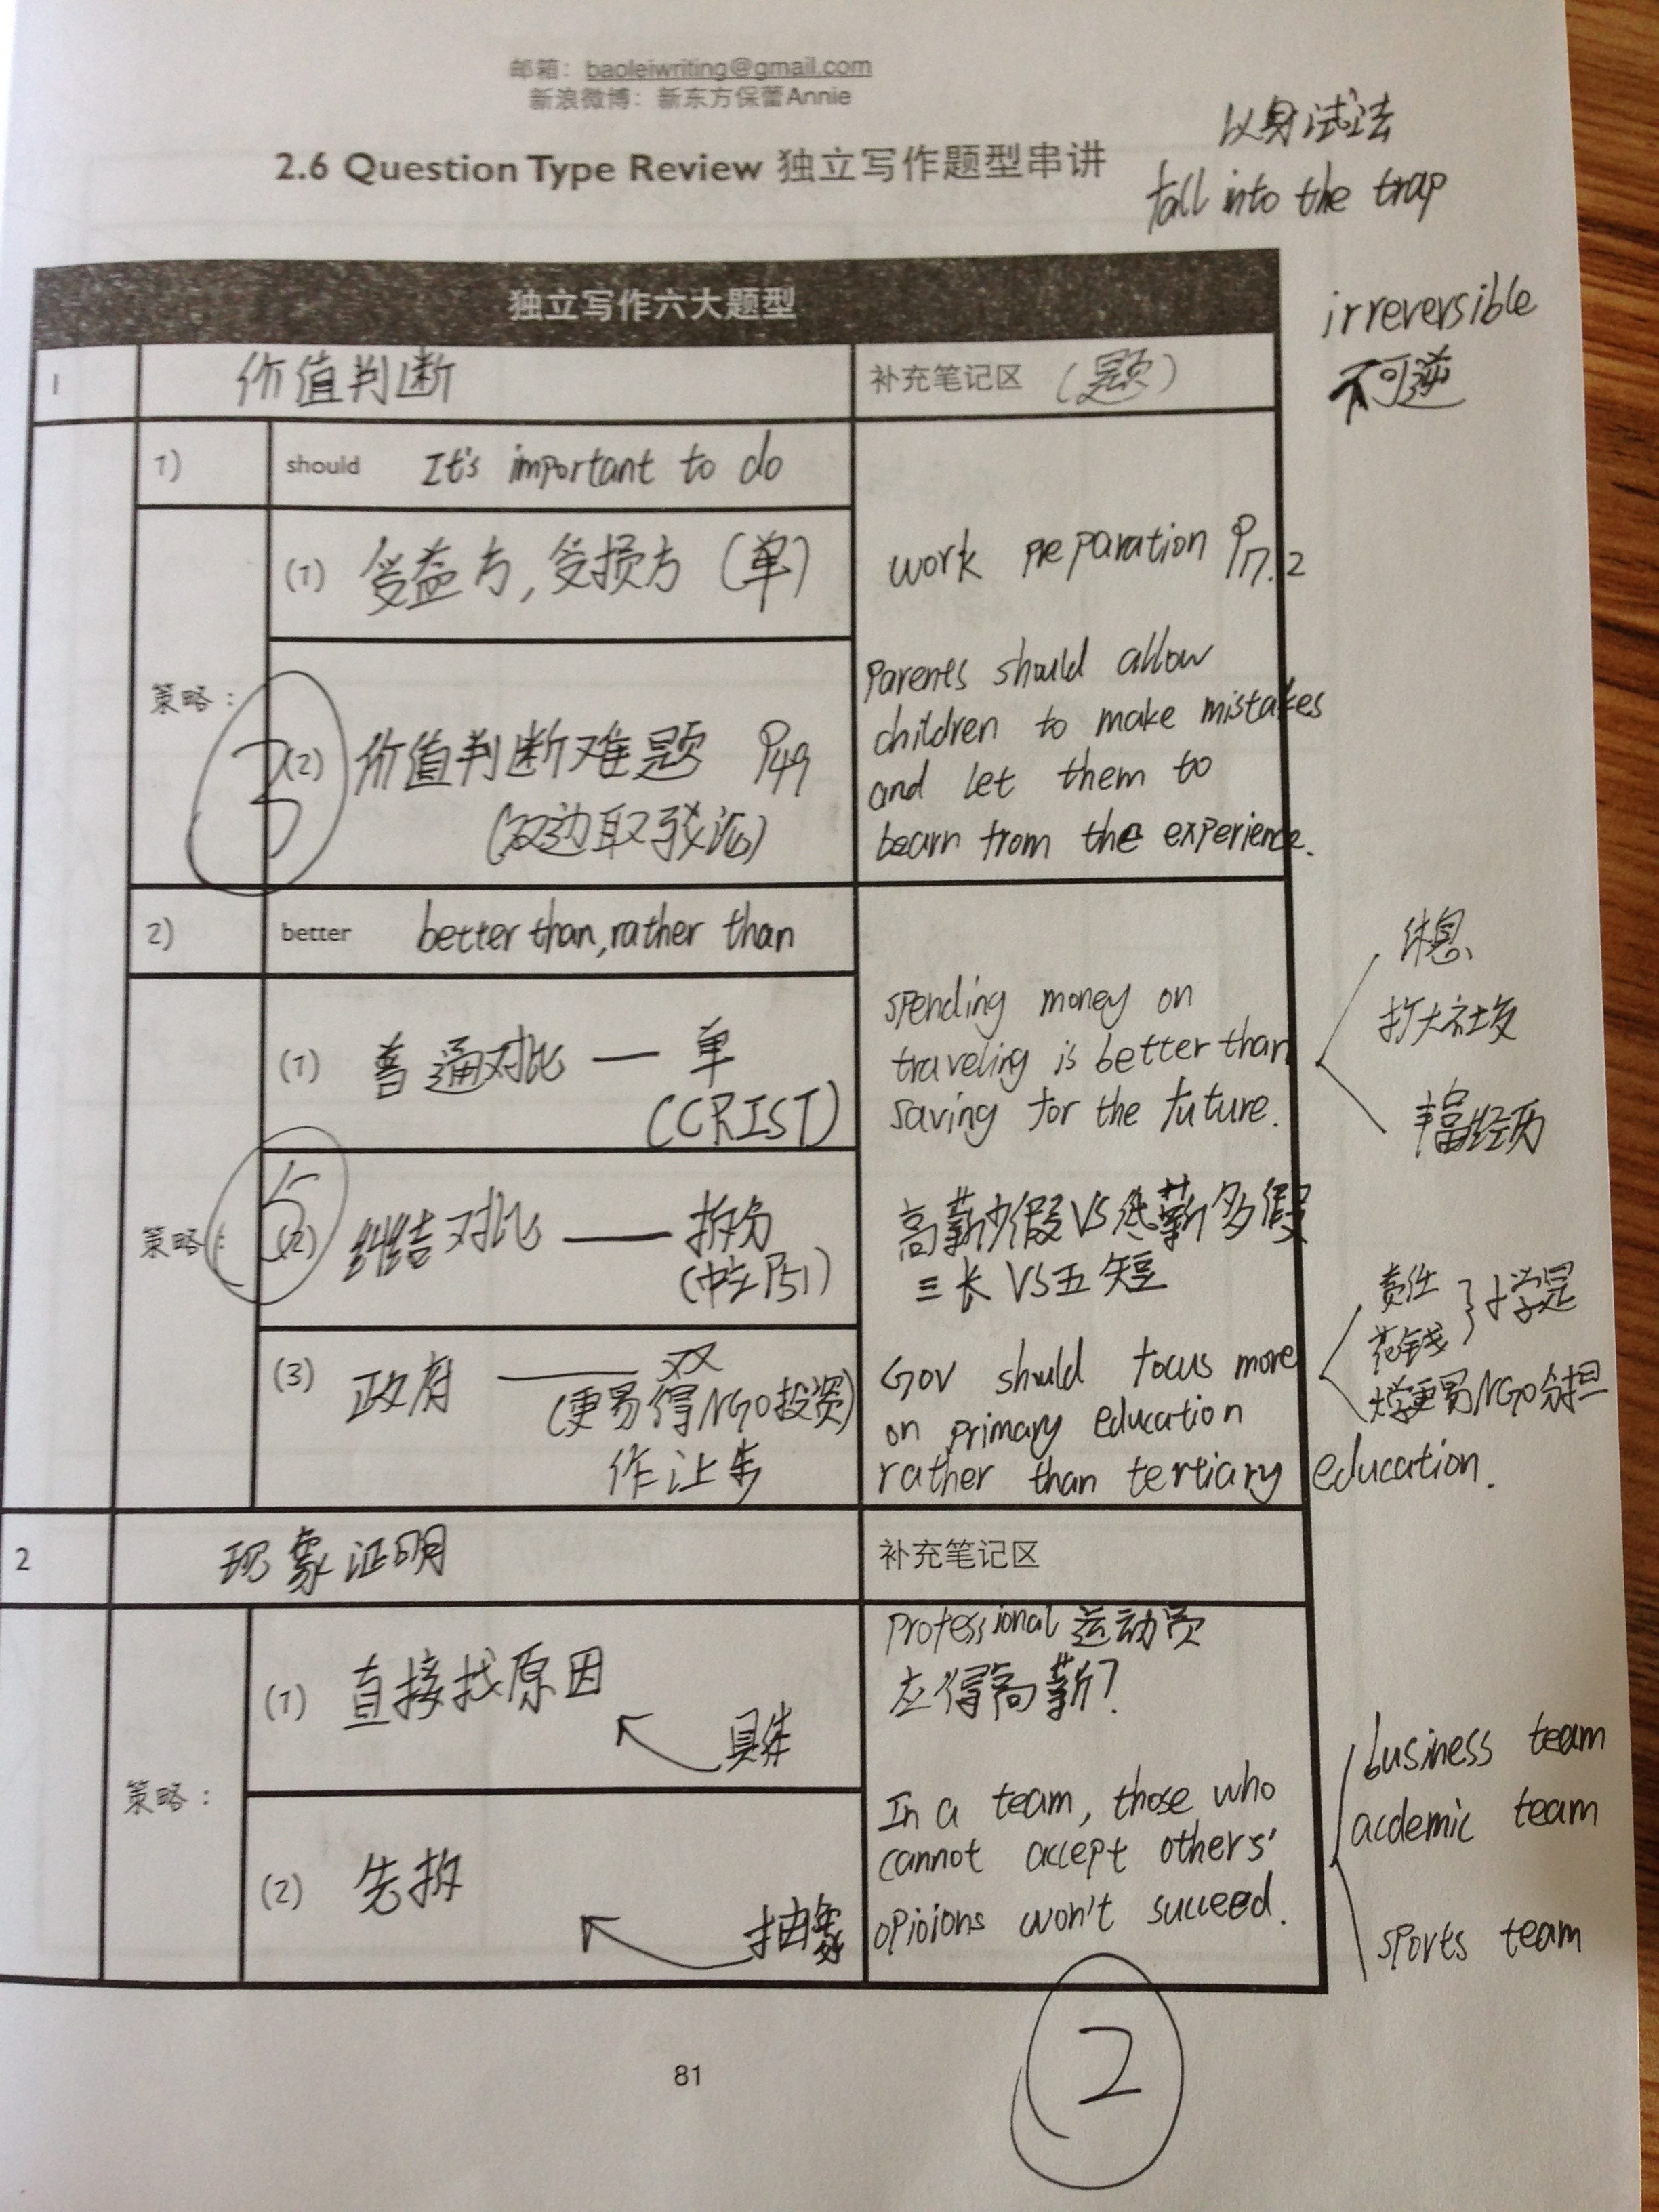 邮箱：baoleiwriting@gmail.com
新浪微博：新东方保蕾Annie
2.6 Question Type Review 独立写作题型串讲
以身试法
fall into the trap
irreversible
不可逆
独立写作六大题型
1 价值判断 补充笔记区 （题）
1) should It's important to do
策略：
(1) 受益方，受损方（单）
work preparation P17.2
3
(2) 价值判断难题 P49
（双边取驳论）
Parents should allow
children to make mistakes
and let them to
bearn from the experience.
2) better better than, rather than
策略：
(1) 普通对比 — 单
(CCRIST)
spending money on
traveling is better than
saving for the future.
休息
扩大社交
丰富经历
5
(2) 纠结对比 —— 拆分
高薪少假VS低薪多假
三长VS五短
(3) 政府 —— 双
（更易得NGO投资）
作让步
Gov should focus more
on primary education
rather than tertiary education.
责任
花钱 } 小学定
大学更易NGO分担
2 现象证明 补充笔记区
策略：
(1) 直接找原因
具体
Professional 运动员
应得高薪？
(2) 先拆
抽象
In a team, those who
cannot accept others'
opioions won't succeed.
business team
acdemic team
sports team
2
81